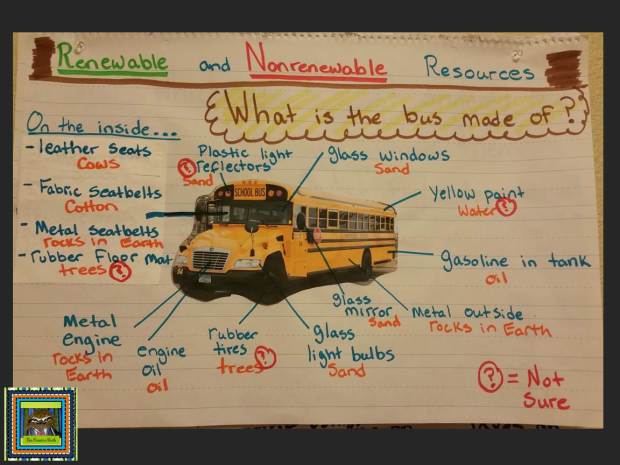 Renewable and Nonrenewable Resources
What is the bus made of?
On the inside...
- leather seats
Cows
- Fabric seatbelts
Cotton
- Metal seatbelts
rocks in Earth
- rubber floor mat
trees ?
Plastic light
? reflectors
Sand
glass windows
Sand
Yellow paint
Water ?
SCHOOL BUS
gasoline in tank
oil
Metal outside
rocks in Earth
glass
mirror
Sand
glass
light bulbs
Sand
rubber
tires
trees ?
engine
oil
oil
Metal
engine
rocks in
Earth
? = Not
Sure